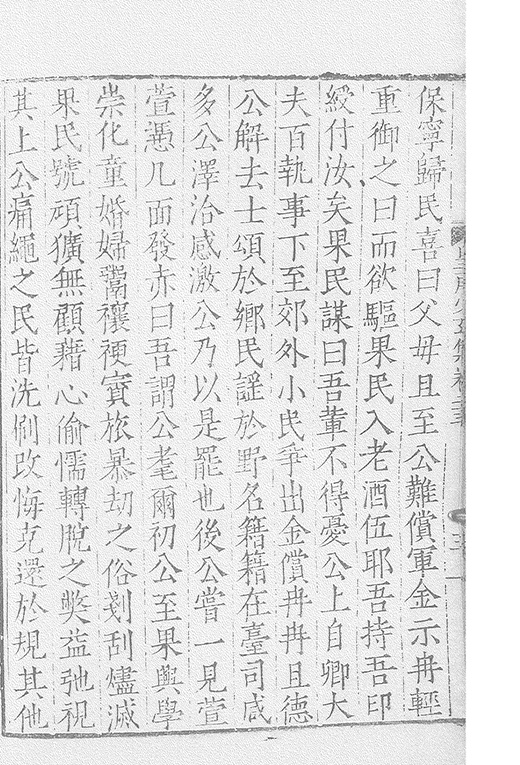 保寧歸民喜曰父毋且至公難償軍金示冉輕
重御之曰而欲驅果民入老酒伍耶吾持吾印
綬付汝矣果民謀曰吾輩不得憂公上自卿大
夫百執事下至郊外小民爭出金償冉冉且德
公解去士頌於鄉民謡於野名籍籍在臺司咸
多公澤治感激公乃以是罷也後公嘗一見萱
萱慿几面發赤曰吾謂公耄爾初公至果興學
崇化童婚婦鬻禳祲賓旅暴刧之俗剗刮燼滅
果民號頑獷無顧藉心偷懦轉脫之獘益弛視
其上公痛繩之民皆洗刷改悔克還於規其他